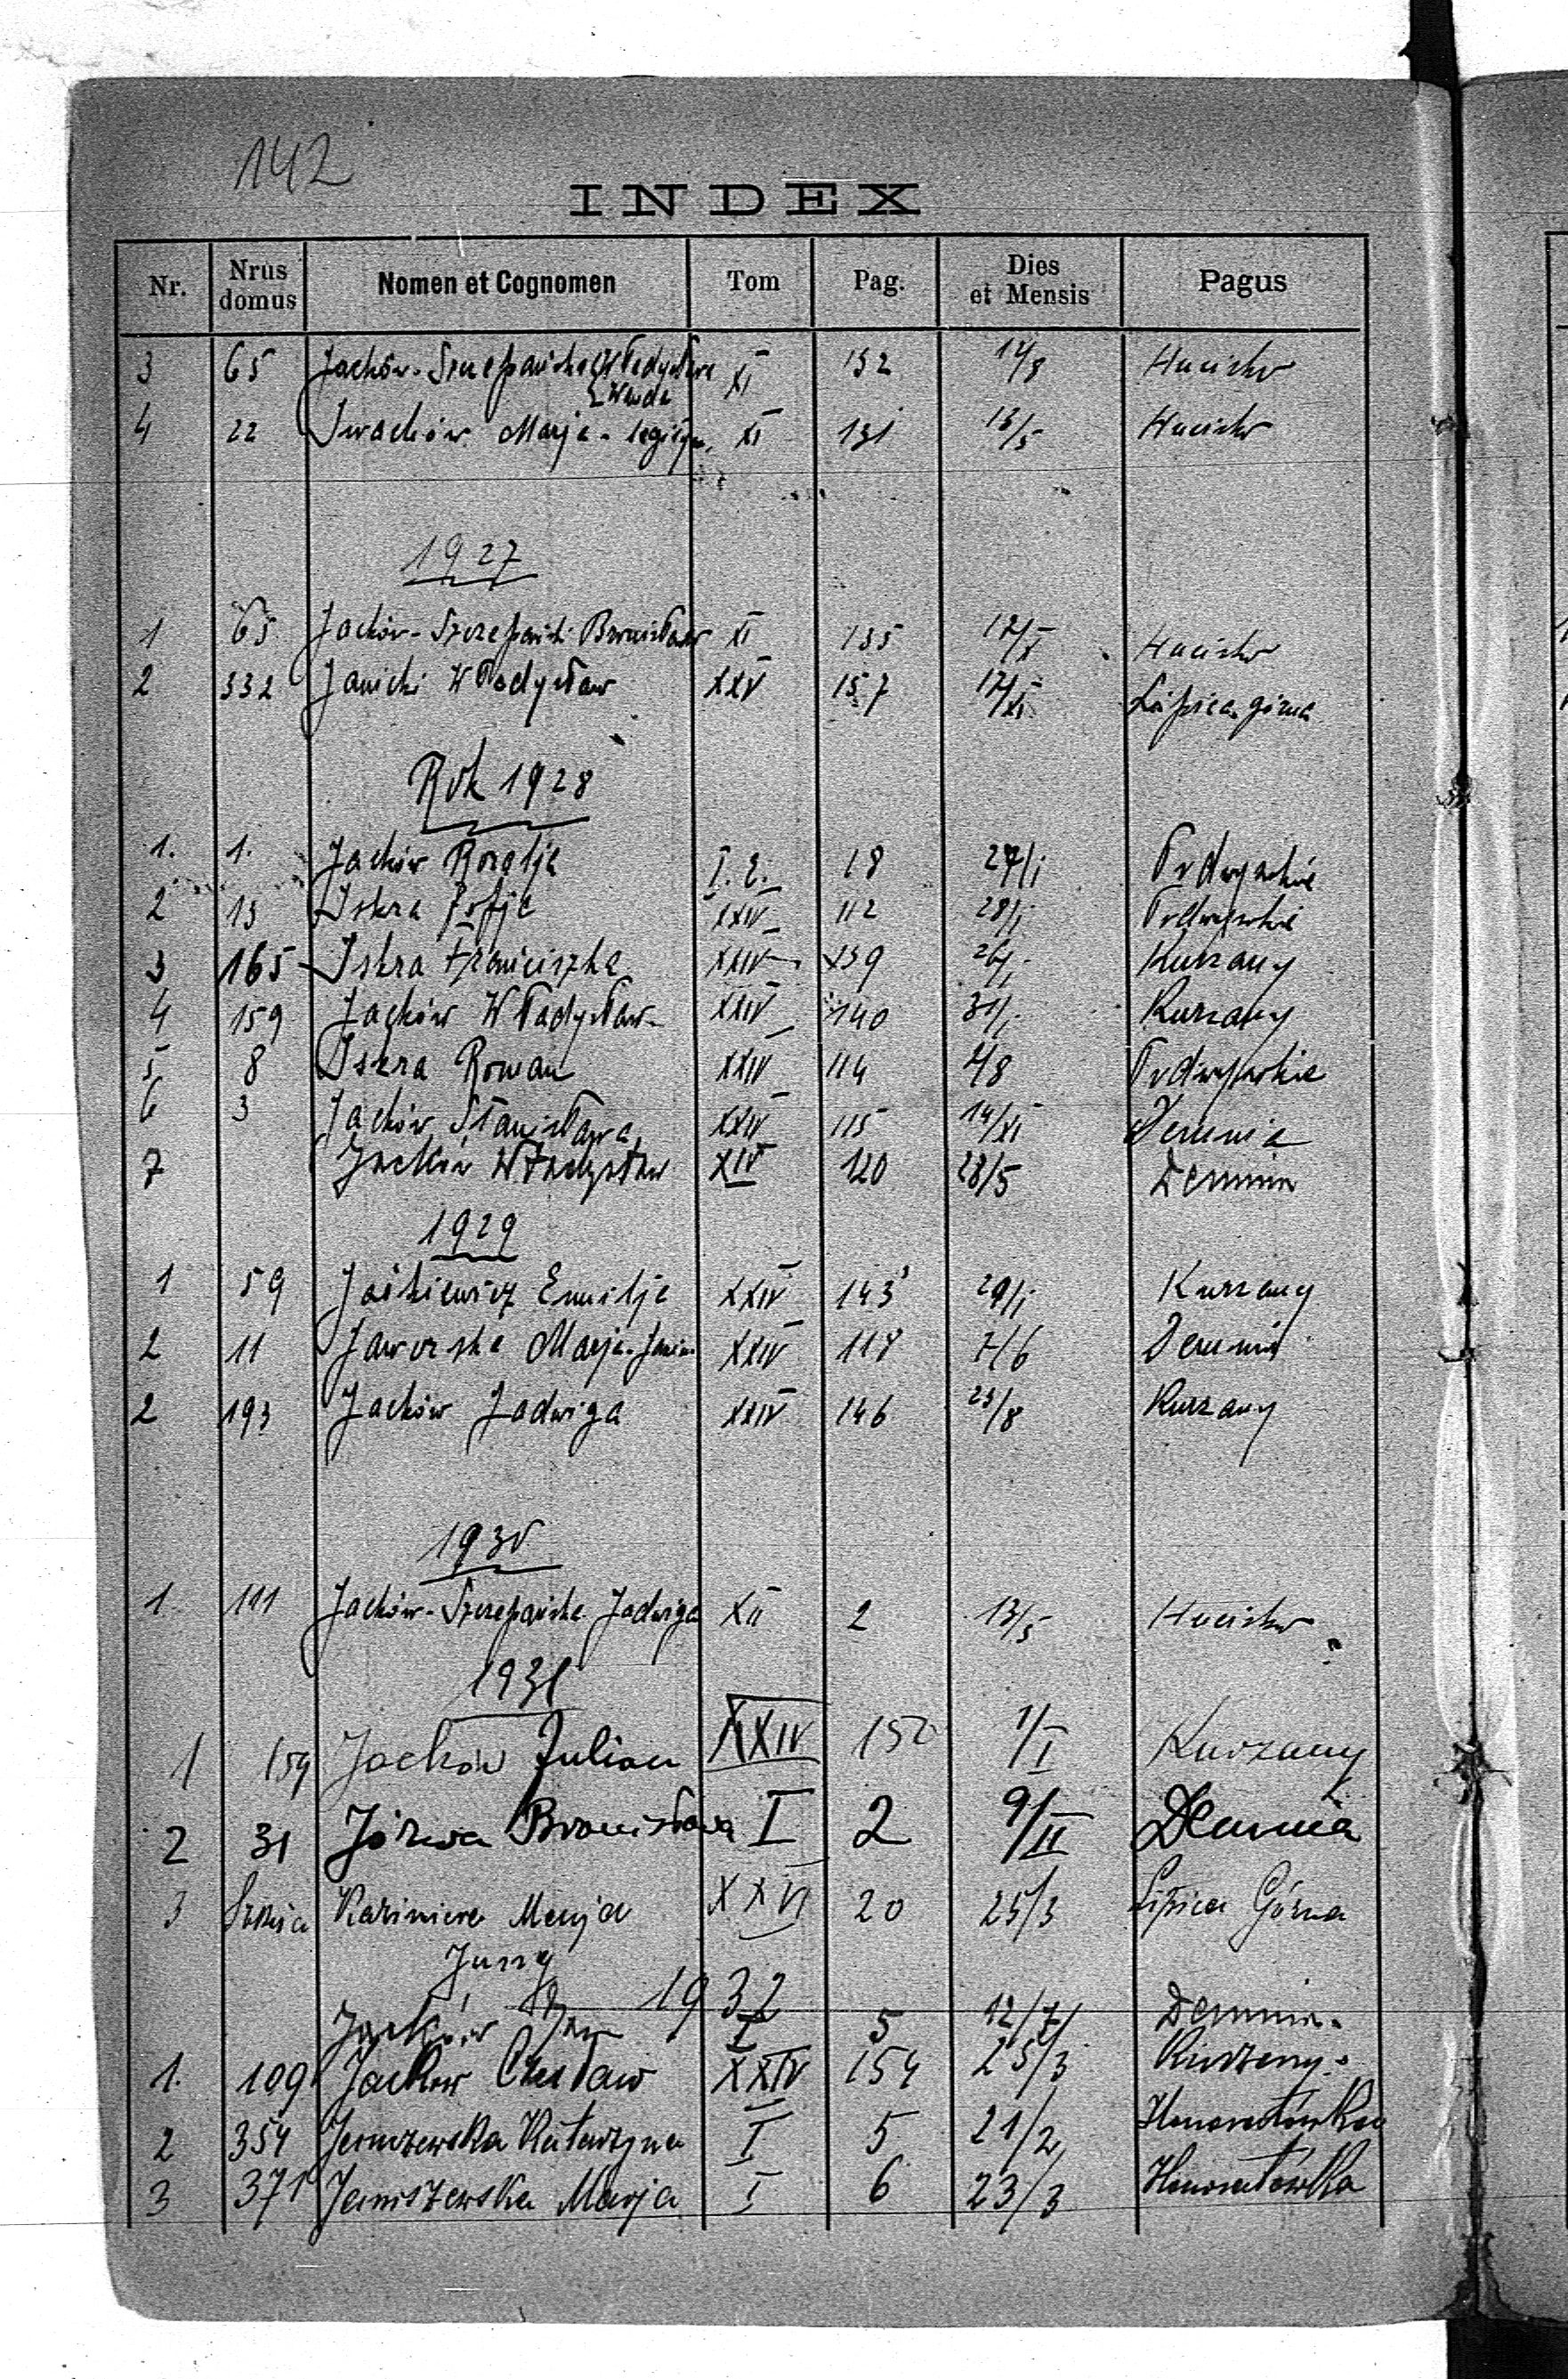 142
INDEX
Nr. Nrus domus Nomen et Cognomen Tom Pag. Dies et Mensis Pagus
3 65 Jackόw-Szczepańska Władysława XI 132 12/3 Hucisko
Wanda
4 22 Iwachów Marja - XI 131 Hucisko
1927
1 65 Jacków-Szczepański Bronisław XI 135 12/X Hucisko
2 332 Janicki Władysław XXV 157 17/XI Lipica górna
Rok 1928
1. 1. Jacków Rozalja I. 2. 18 27/I Podwysokie
2 13 Iskra Zofja XXIV 112 28/I Podwysokie
3 165 Iskra Franciszka XXIV 139 26/I Kurzany
4 159 Jacków Władysław XXIV 140 31/I Kurzany
5 8 Iskra Roman XXIV 114 4/8 Podwysokie
6 3 Jacków Stanisława XXIV 115 14/XI Demnia
7 Jacków Władysław XIV 120 28/5 Demnia
1929
1 59 Jaśkiewicz Emilja XXIV 143 29/I Kurzany
2 11 Jaworska Marja-Janina XXIV 118 7/6 Demnia
2 193 Jacków Jadwiga XXIV 146 23/8 Kurzany
1930
1 111 Jacków-Szczepańska Jadwiga XII 2 13/5 Hucisko
1931
1 159 Jacków Julian XXIV 152 1/I Kurzany
2 31 Józwa Bronisława I 2 9/II Demnia
3 Kazimiera Marja XXVI 20 25/3 Lipica Górna
Jung
1932
Jacków Jan I 5 12/7 Demnia.
1. 109 Jacków Czesław XXIV 154 25/3 Kurzany.
2 354 Katarzyna I 5 21/2 Honoratówka
3 371 Janiszewska Marja I 6 23/3 Honoratówka